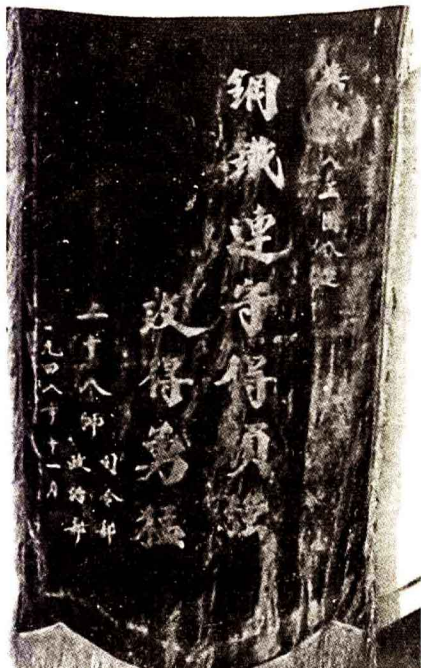 鋼鐵連守得頑强
攻得勇猛
二十八師
司令部
政治部
一九四八年十一月